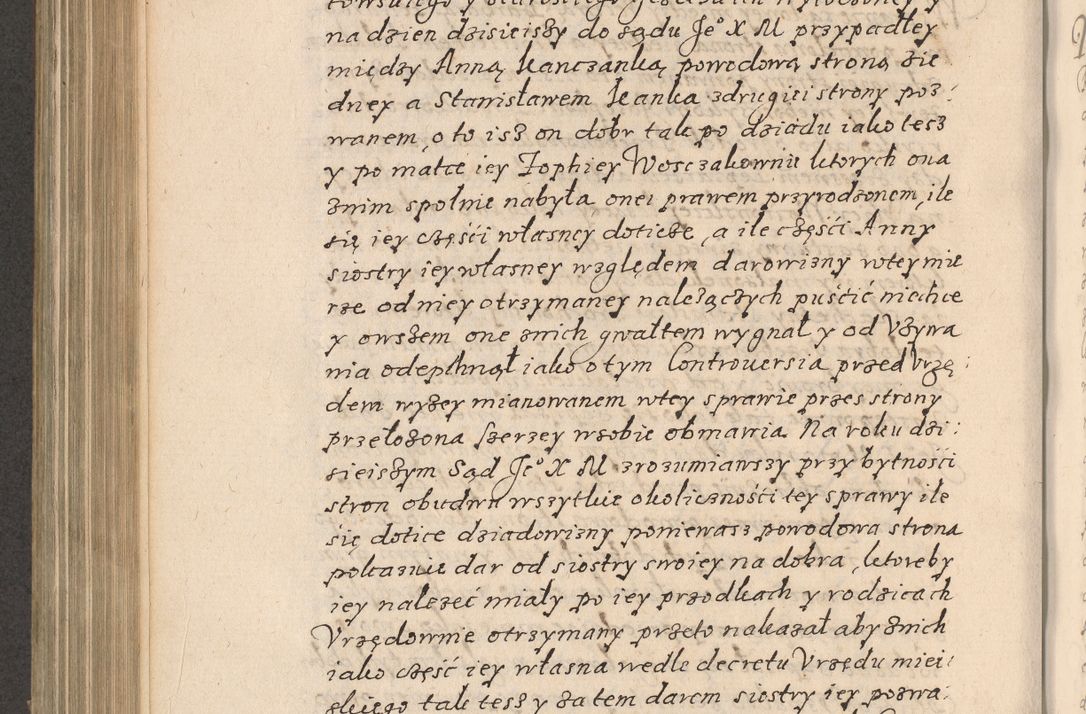 na dzien dzisieiszy do sądu Jeº X M przypadłey
między Anną Kanczanką powodową stroną zie
dney a Stanisławem Kanka zdrugiei strony poz:
wanem, o to isz on dobr tak po dziadu iako tesz
y po matce iey Zophiey Wosczakownie ktorych ona
znim spolnie nabyła onei prawem przyrodzonem, ile
się iey części własney doticze, a ile części Anny
siostry iey własney względem darowizny wtey mie
rze od niey otrzymaney należących puścić niechce
y owszem one znich gwałtem wygnał y od Vzywa
nia odepchnął iako o tym Controuersia przed Vrzę:
dem wyzey mianowanem wtey sprawie przes strony
przełozona szerzey wsobie obmawia. Na roku dzi:
sieiszym Sąd Jeº X M zrozumiawszy przy bytności
stron obudwu wszytkie okoliczności tey sprawy ile
się dotice dziadowizny poniewasz powodowa strona
pokazuie dar od siostry swoiey na dobra, ktoreby
iey nalezeć miały po iey przodkach y rodzicach
Vrzędownie otrzymany przeto nakazał aby znich
iako część iey własna wedle decretu Vrzędu miei:
skiego tak tesz y za tem darem siostry iey pozwa: